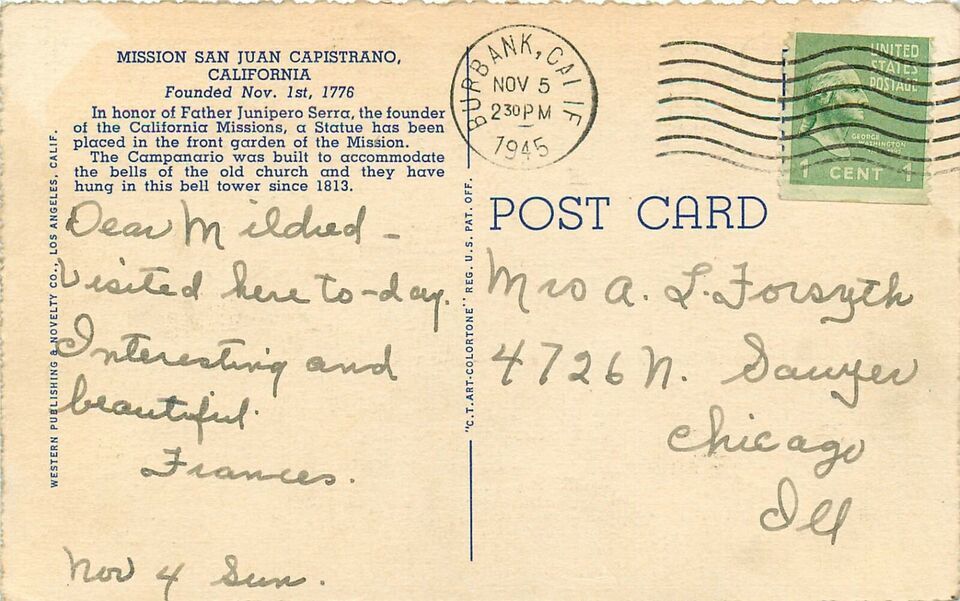 MISSION SAN JUAN CAPISTRANO,
CALIFORNIA
Founded Nov. 1st, 1776
In honor of Father Junipero Serra, the founder
of the California Missions, a Statue has been
placed in the front garden of the Mission.
The Campanario was built to accommodate
the bells of the old church and they have
hung in this bell tower since 1813.
Dear Mildred -
Visited here to-day.
Interesting and
beautiful.
Frances.
Nov 4 Sun.
WESTERN PUBLISHING & NOVELTY CO., LOS ANGELES, CALIF.
"C.T. ART-COLORTONE" REG. U.S. PAT. OFF.
BURBANK, CALIF
NOV 5
230 PM
1945
UNITED
STATES
POSTAGE
GEORGE
WASHINGTON
1 CENT 1
POST CARD
Mrs A. L. Forsyth
4726 N. Sawyer
Chicago
Ill